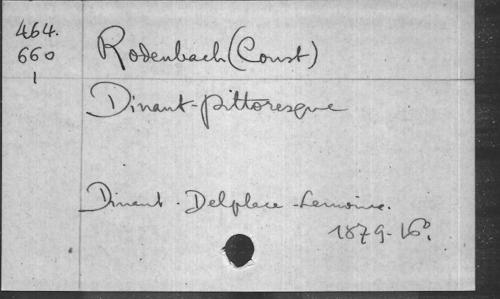 464.
660
1
Rodenbach (Const)
Dinant-pittoresque
Dinant. Delplace-Lemoine.
1879-16°.